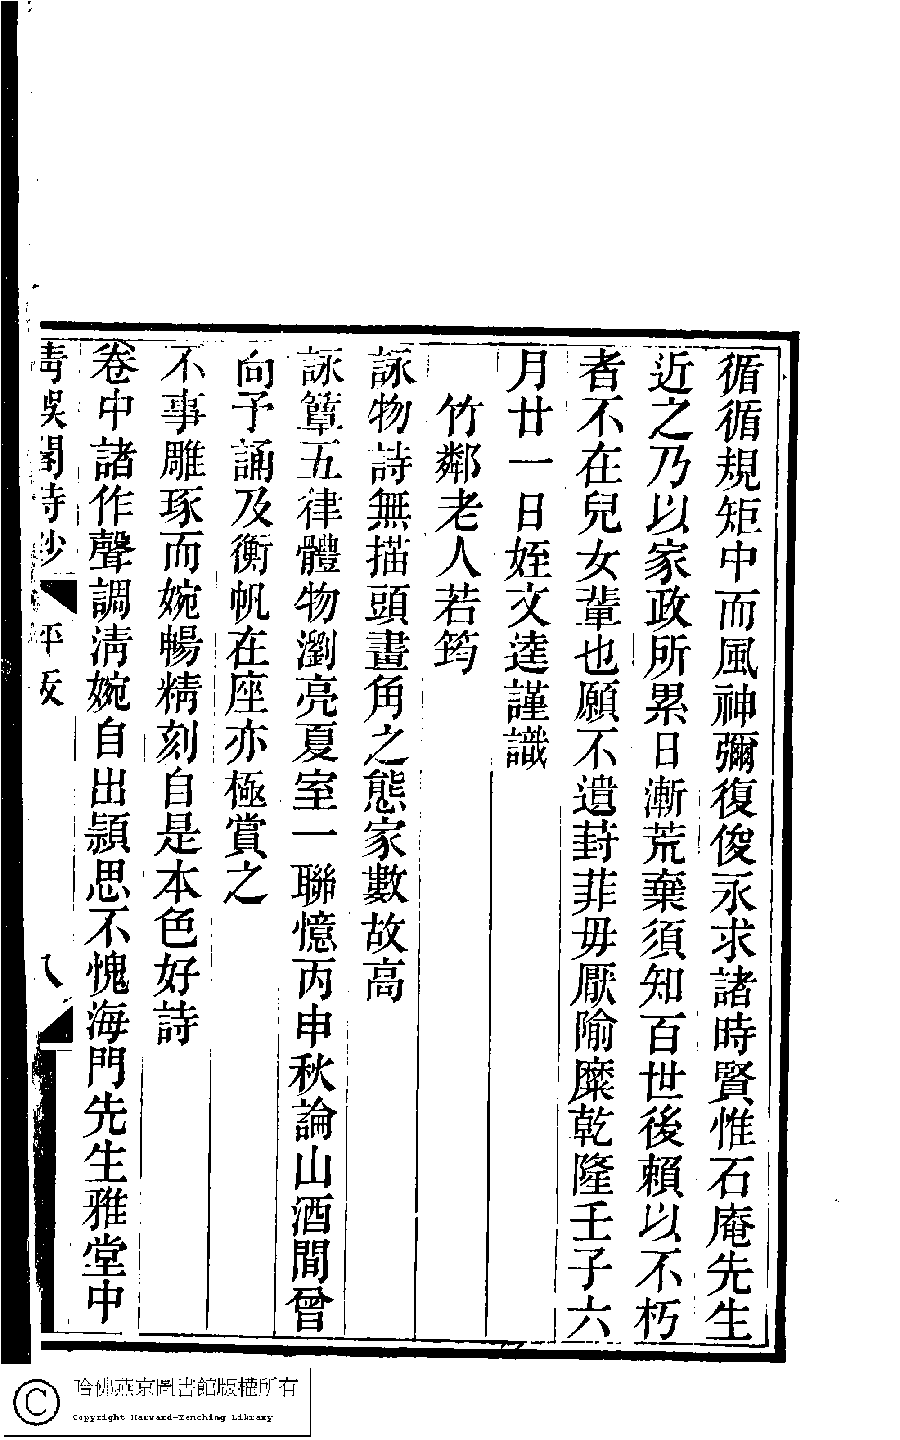 循循規矩中而風神彌復俊永求諸時賢惟石庵先生
近之乃以家政所累日漸荒棄須知百世後賴以不朽
者不在兒女輩也願不遺葑菲毋厭隃糜乾隆壬子六
月廿一日姪文逵謹識
竹鄰老人若筠
詠物詩無描頭畫角之態家數故高
詠簟五律體物瀏亮夏室一聯憶丙申秋論山酒間曾
向予誦及衡帆在座亦極賞之
不事雕琢而婉暢精刻自是本色好詩
卷中諸作聲調淸婉自出頴思不愧海門先生雅堂中
青娛閣詩鈔
評跋
八
哈佛燕京圖書館版權所有
Copyright Harvard-Yenching Library